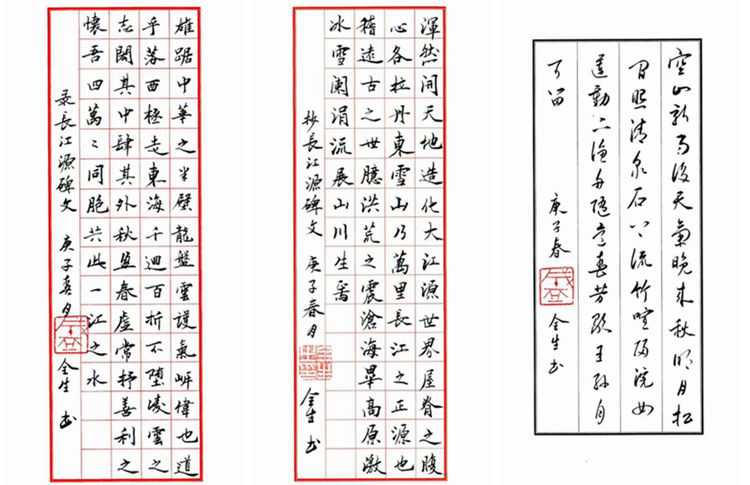 空山新雨後天氣晚來秋明月松
間照清泉石上流竹喧歸浣女
蓮動下漁舟隨意春芳歇王孫自
可留
庚子春 全生书
渾然開天地造化大江源世界屋脊之腹
心各拉丹東雪山乃萬里長江之正源也
稽遠古之世臆洪荒之震滄海畢高原激
冰雪闌涓流展山川生焉
抄長江源碑文 庚子春月 全生书
雄踞中華之半壁龍盤雲護氣岍偉也道
乎落西極走東海千迴百折不墮凌雲之
志閎其中肆其外秋盈春虛常抒善利之
懷吾四萬〻同胞共此一江之水
录長江源碑文 庚子春月 全生书